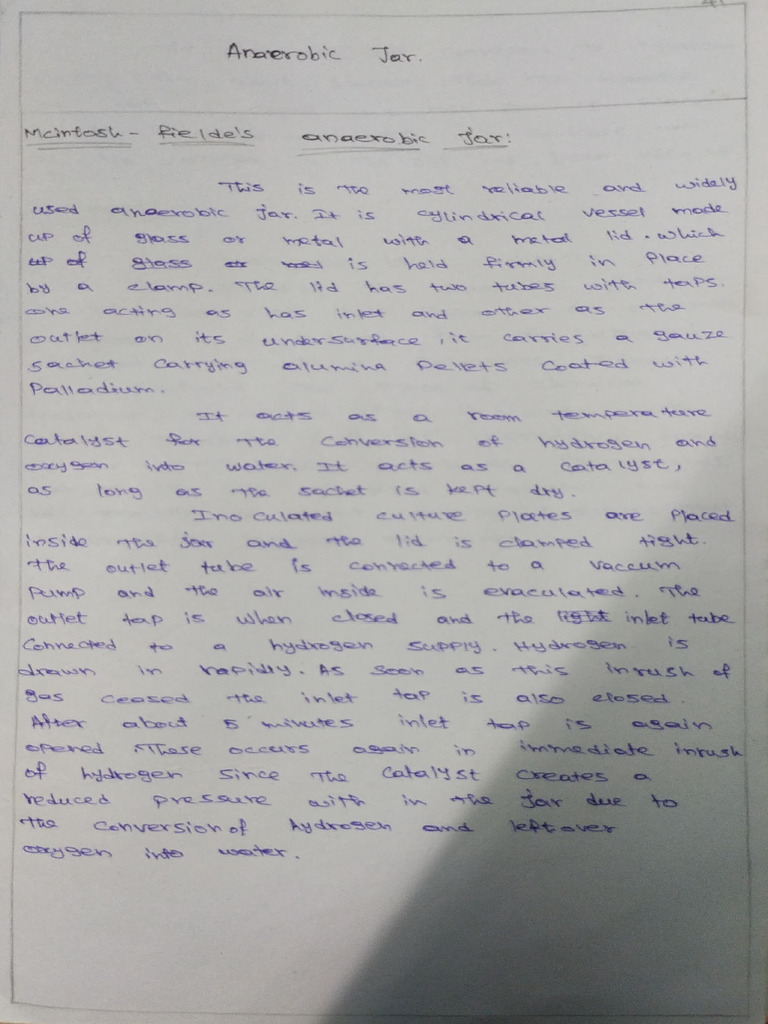 Anaerobic Jar.
Mcintosh - fielde's anaerobic Jar:
This is the most reliable and widely
used anaerobic jar. It is cylindrical vessel made
up of glass or metal with a metal lid. which
up of glass or is held firmly in place
by a clamp. The lid has two tubes with taps.
one acting as has inlet and other as the
outlet on its undersurface, it carries a gauze
sachet carrying alumina pellets coated with
palladium.
It acts as a room temperature
catalyst for the conversion of hydrogen and
oxygen into water. It acts as a catalyst,
as long as the sachet is kept dry.
Inoculated culture plates are placed
inside the jar and the lid is clamped tight.
The outlet tube is connected to a vaccum
pump and the air inside is evaculated. The
outlet tap is when closed and the light inlet tube
connected to a hydrogen supply. Hydrogen is
drawn in rapidly. As soon as this inrush of
gas ceased the inlet tap is also closed.
After about 5 minutes inlet tap is again
opened. These occurs again in immediate inrush
of hydrogen since the catalyst creates a
reduced pressure with in the jar due to
the conversion of hydrogen and left over
oxygen into water.